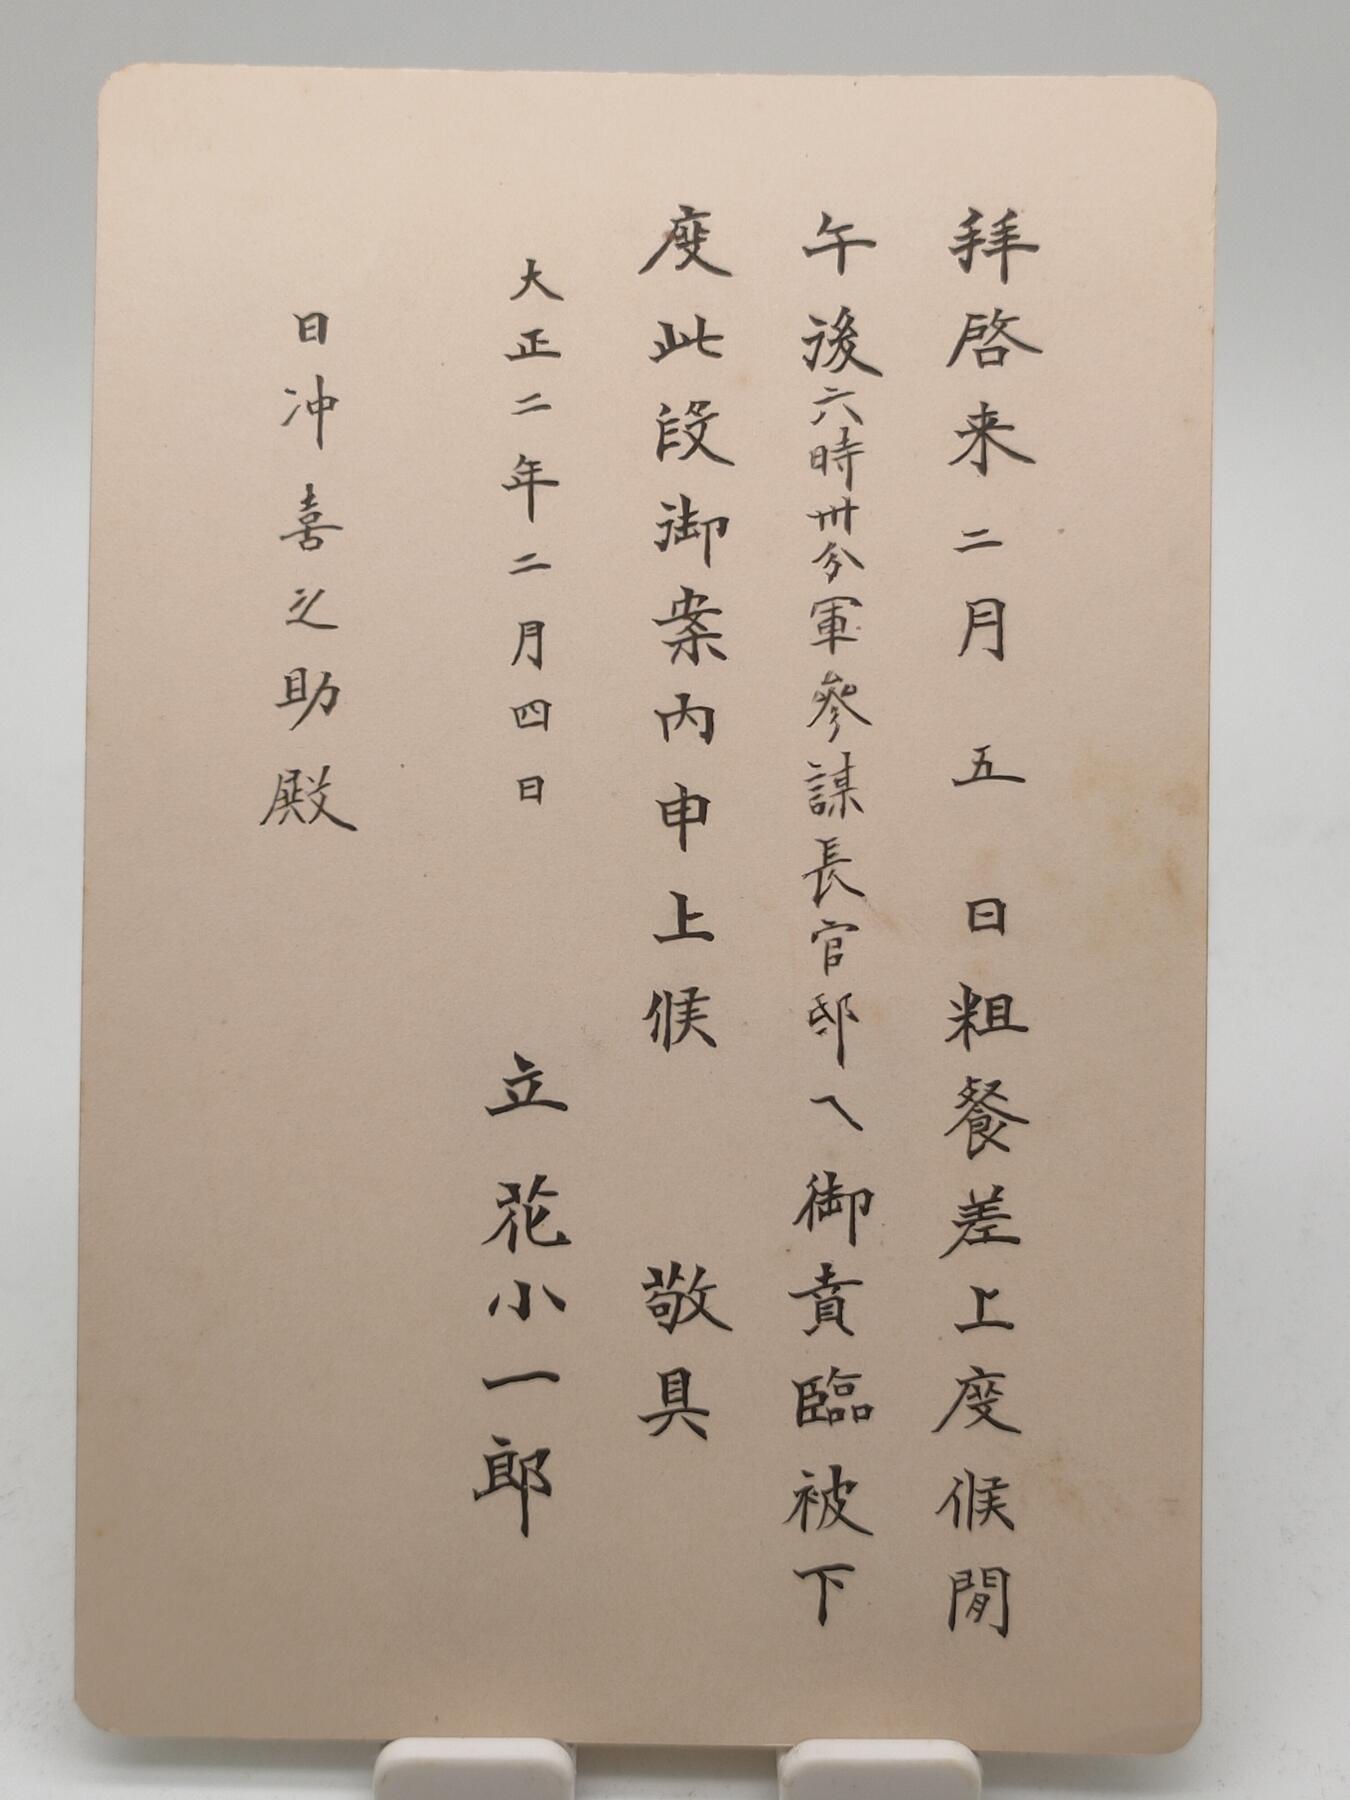 拜啓来二月五日粗餐差上度候間
午後六時卅分軍參謀長官邸ヘ御賁臨被下
度此段御案内申上候　敬具
大正二年二月四日　立花小一郎
日冲喜之助殿